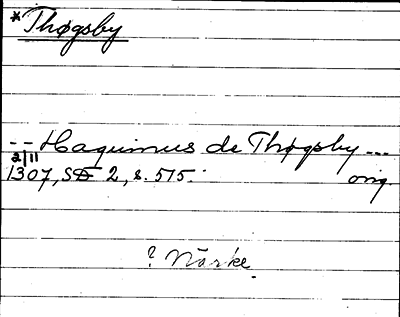 *Thøgsby
-- Haquinus de Thøgsby ---
2/11
1307, SD 2, s. 515. orig.
? Närke.